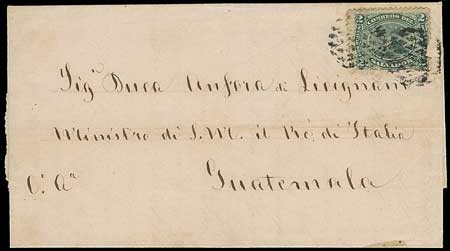 2 CORREOS DEL 2
SALVADOR
Sigʳ Duca Anfora di Licignano
Ministro di S. M. il Rè, di Italia
C. Aᵃ Guatemala